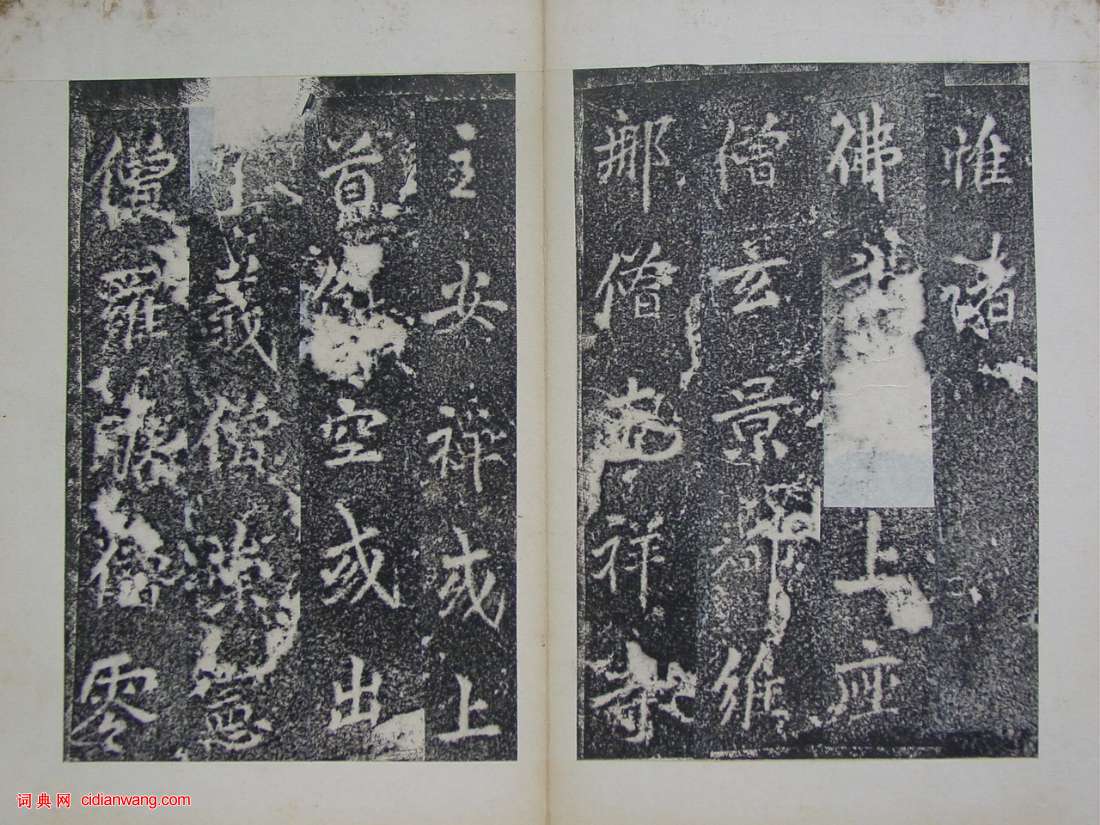 惟諸
佛上座
僧玄景都維
那僧尚祥寺
主安禪或上
首空或出
義僧
僧羅僧零
词典网 cidianwang.com